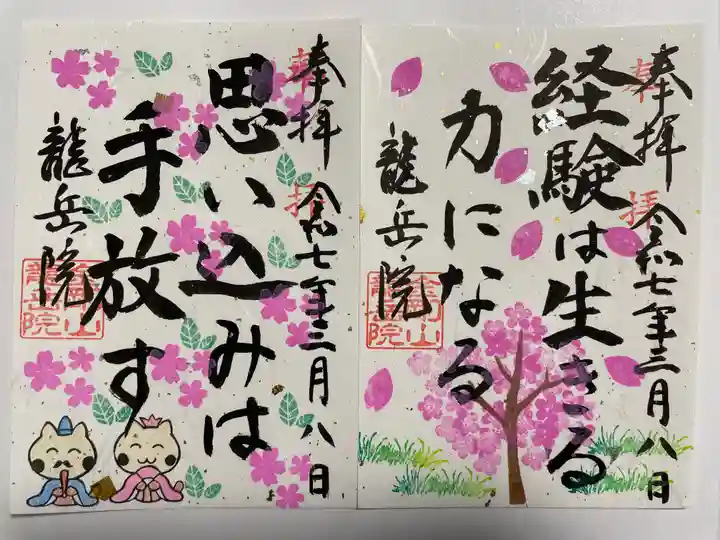 奉拝 令和七年三月八日
経験は生きる
力になる
龍岳院
奉拝 令和七年三月八日
思い込みは
手放す
龍岳院